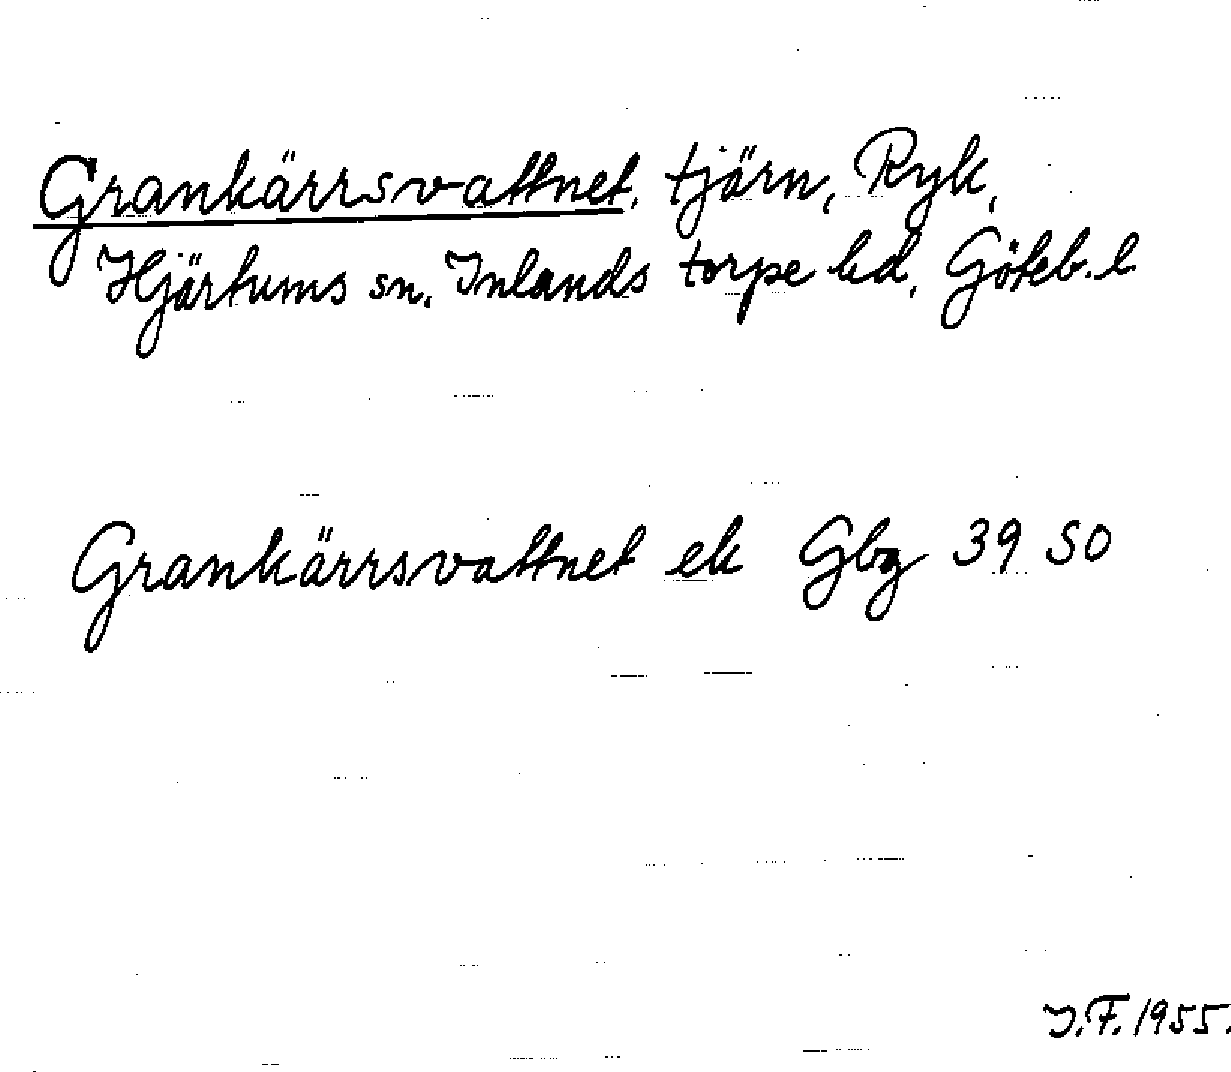 Grankärrsvattnet, tjärn, Ryk,
Hjärtums sn, Inlands torpe hd, Göteb. l
Grankärrsvattnet ek Gbg 39 SO
J.F. 1955.